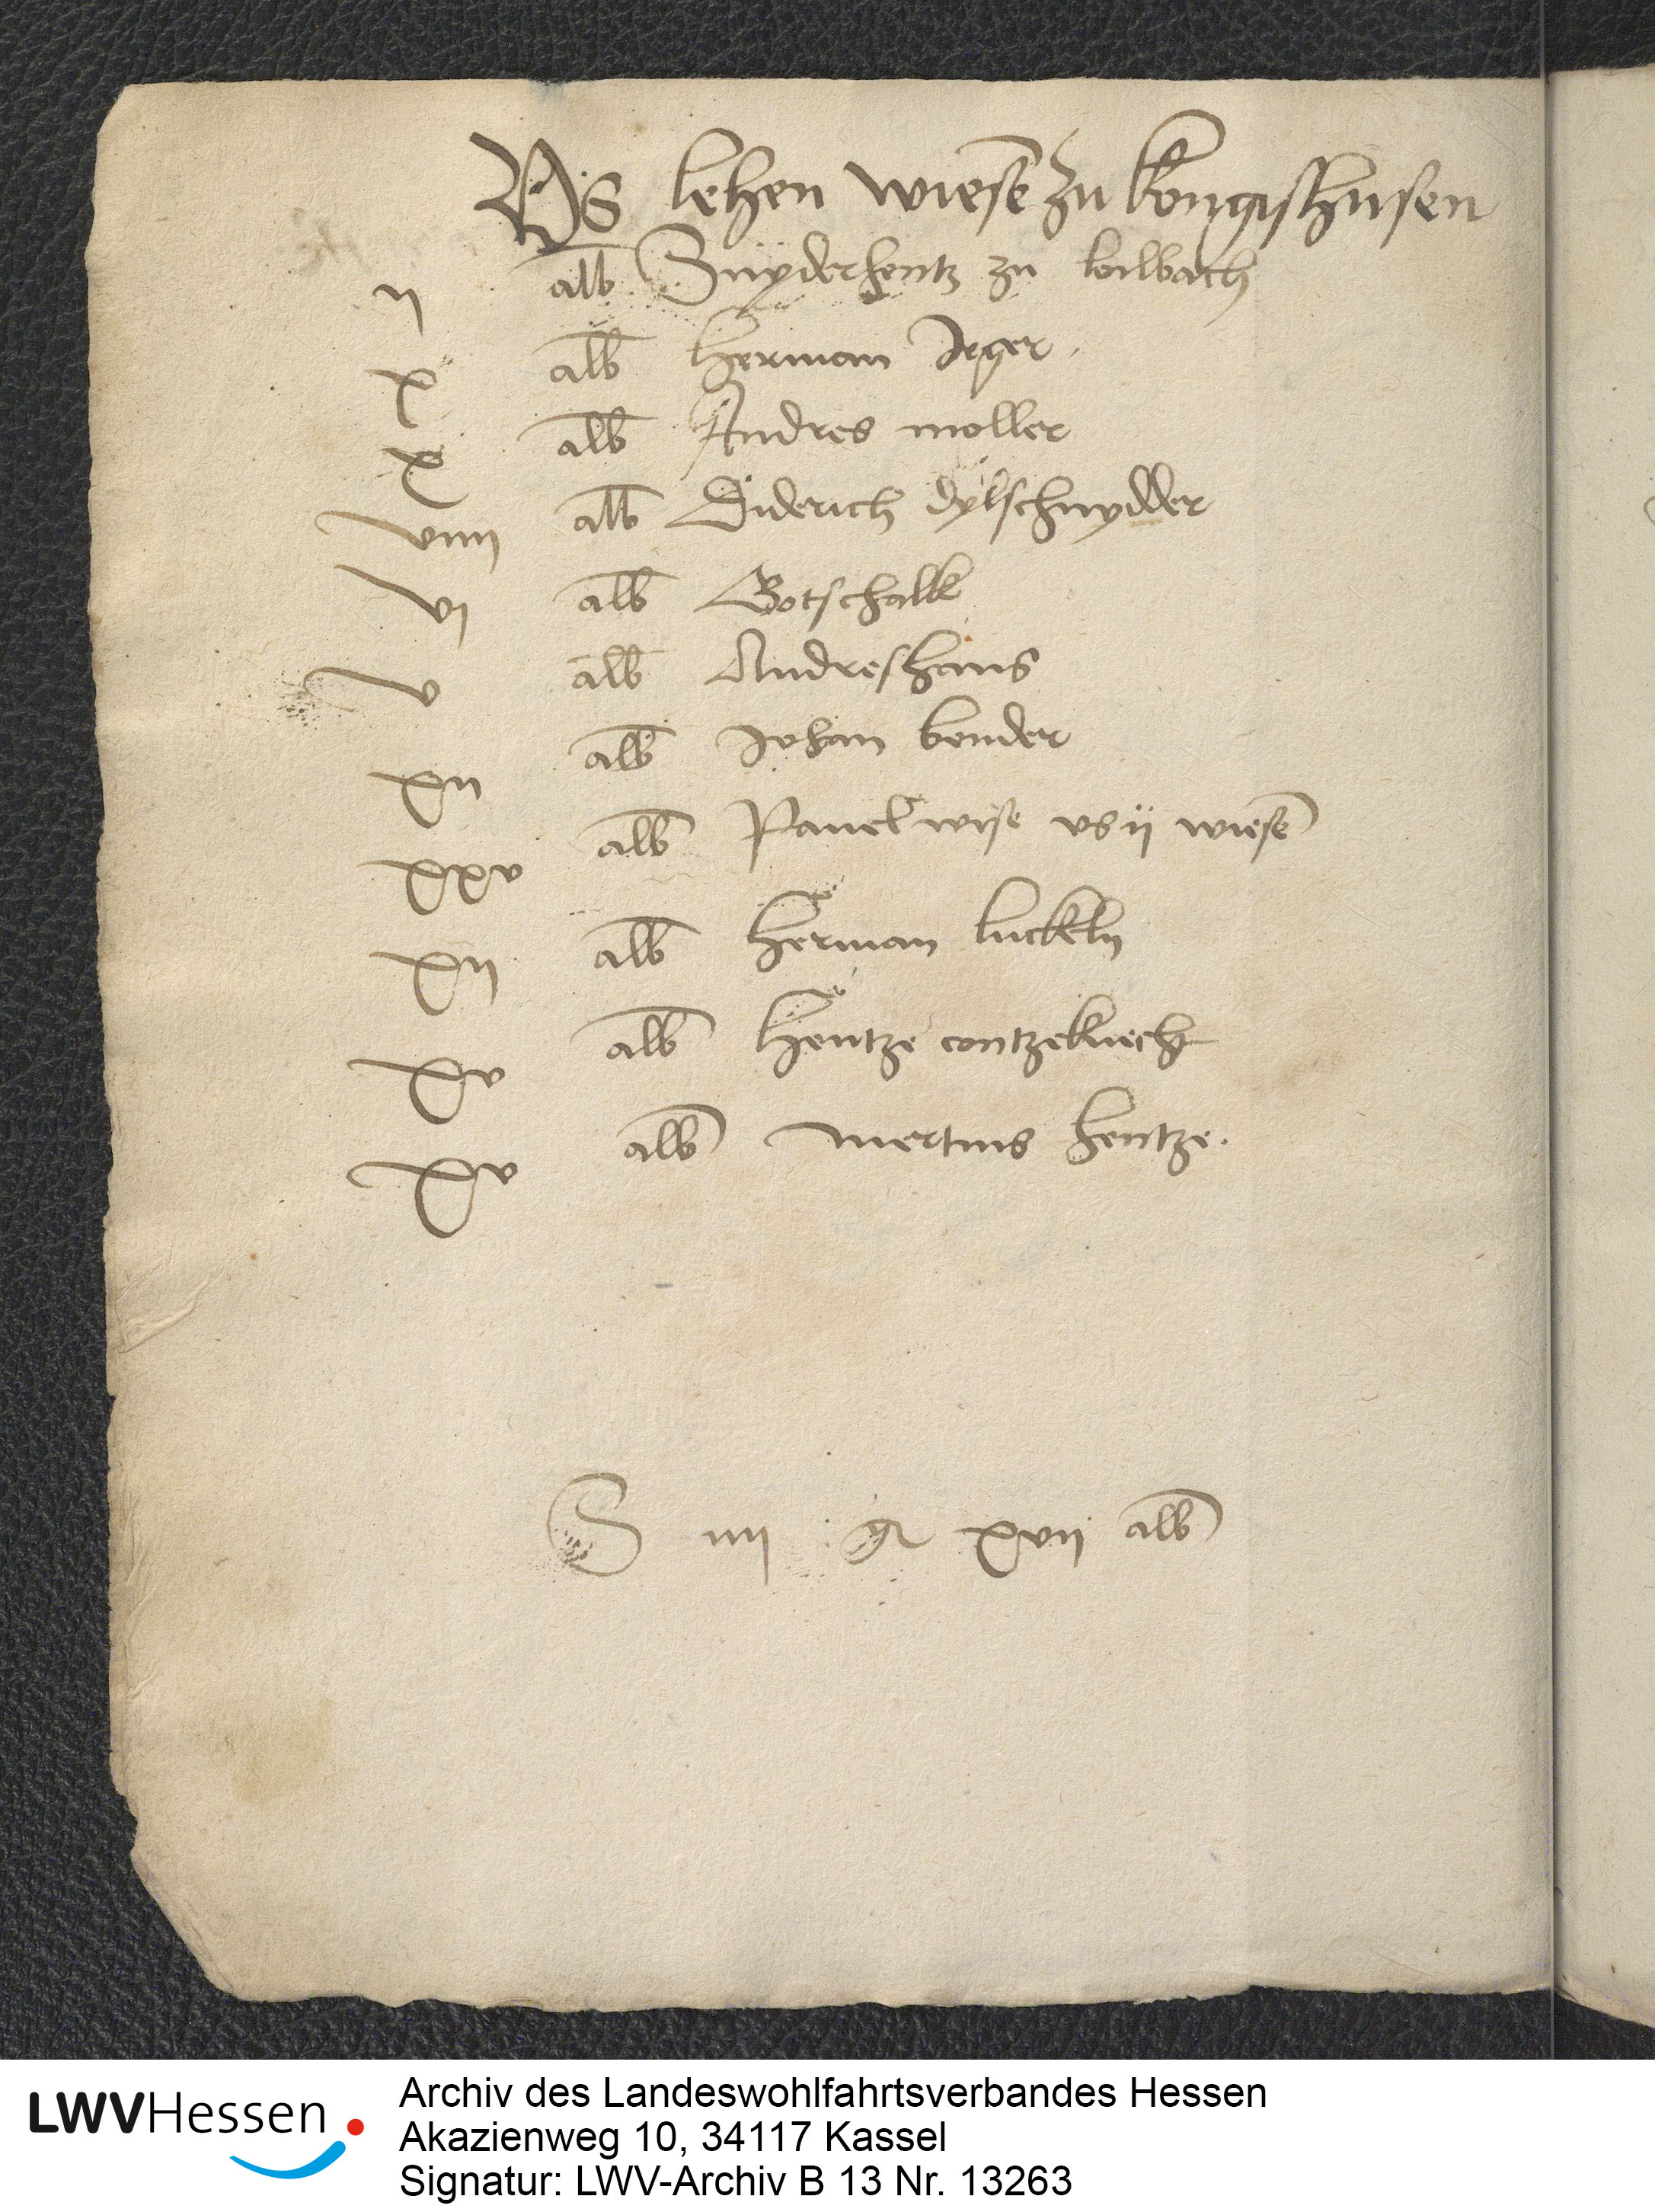 Vs lehen wiesen zu kongishusen
ij alb Snyderhentz zu leilbach
x alb Herman Jeger
x alb Andres moller
viiij alb Diderich dylschnydder
vj alb Gotschalk
v alb Andreshans
xij alb Johan bender
xxv alb Pauel wise vs ij wiesen
xij alb Herman luckeln
xv alb Hentze contzeknecht
xv alb mertins hentze.
S iiij g xvij alb
LWVHessen
Archiv des Landeswohlfahrtsverbandes Hessen
Akazienweg 10, 34117 Kassel
Signatur: LWV-Archiv B 13 Nr. 13263